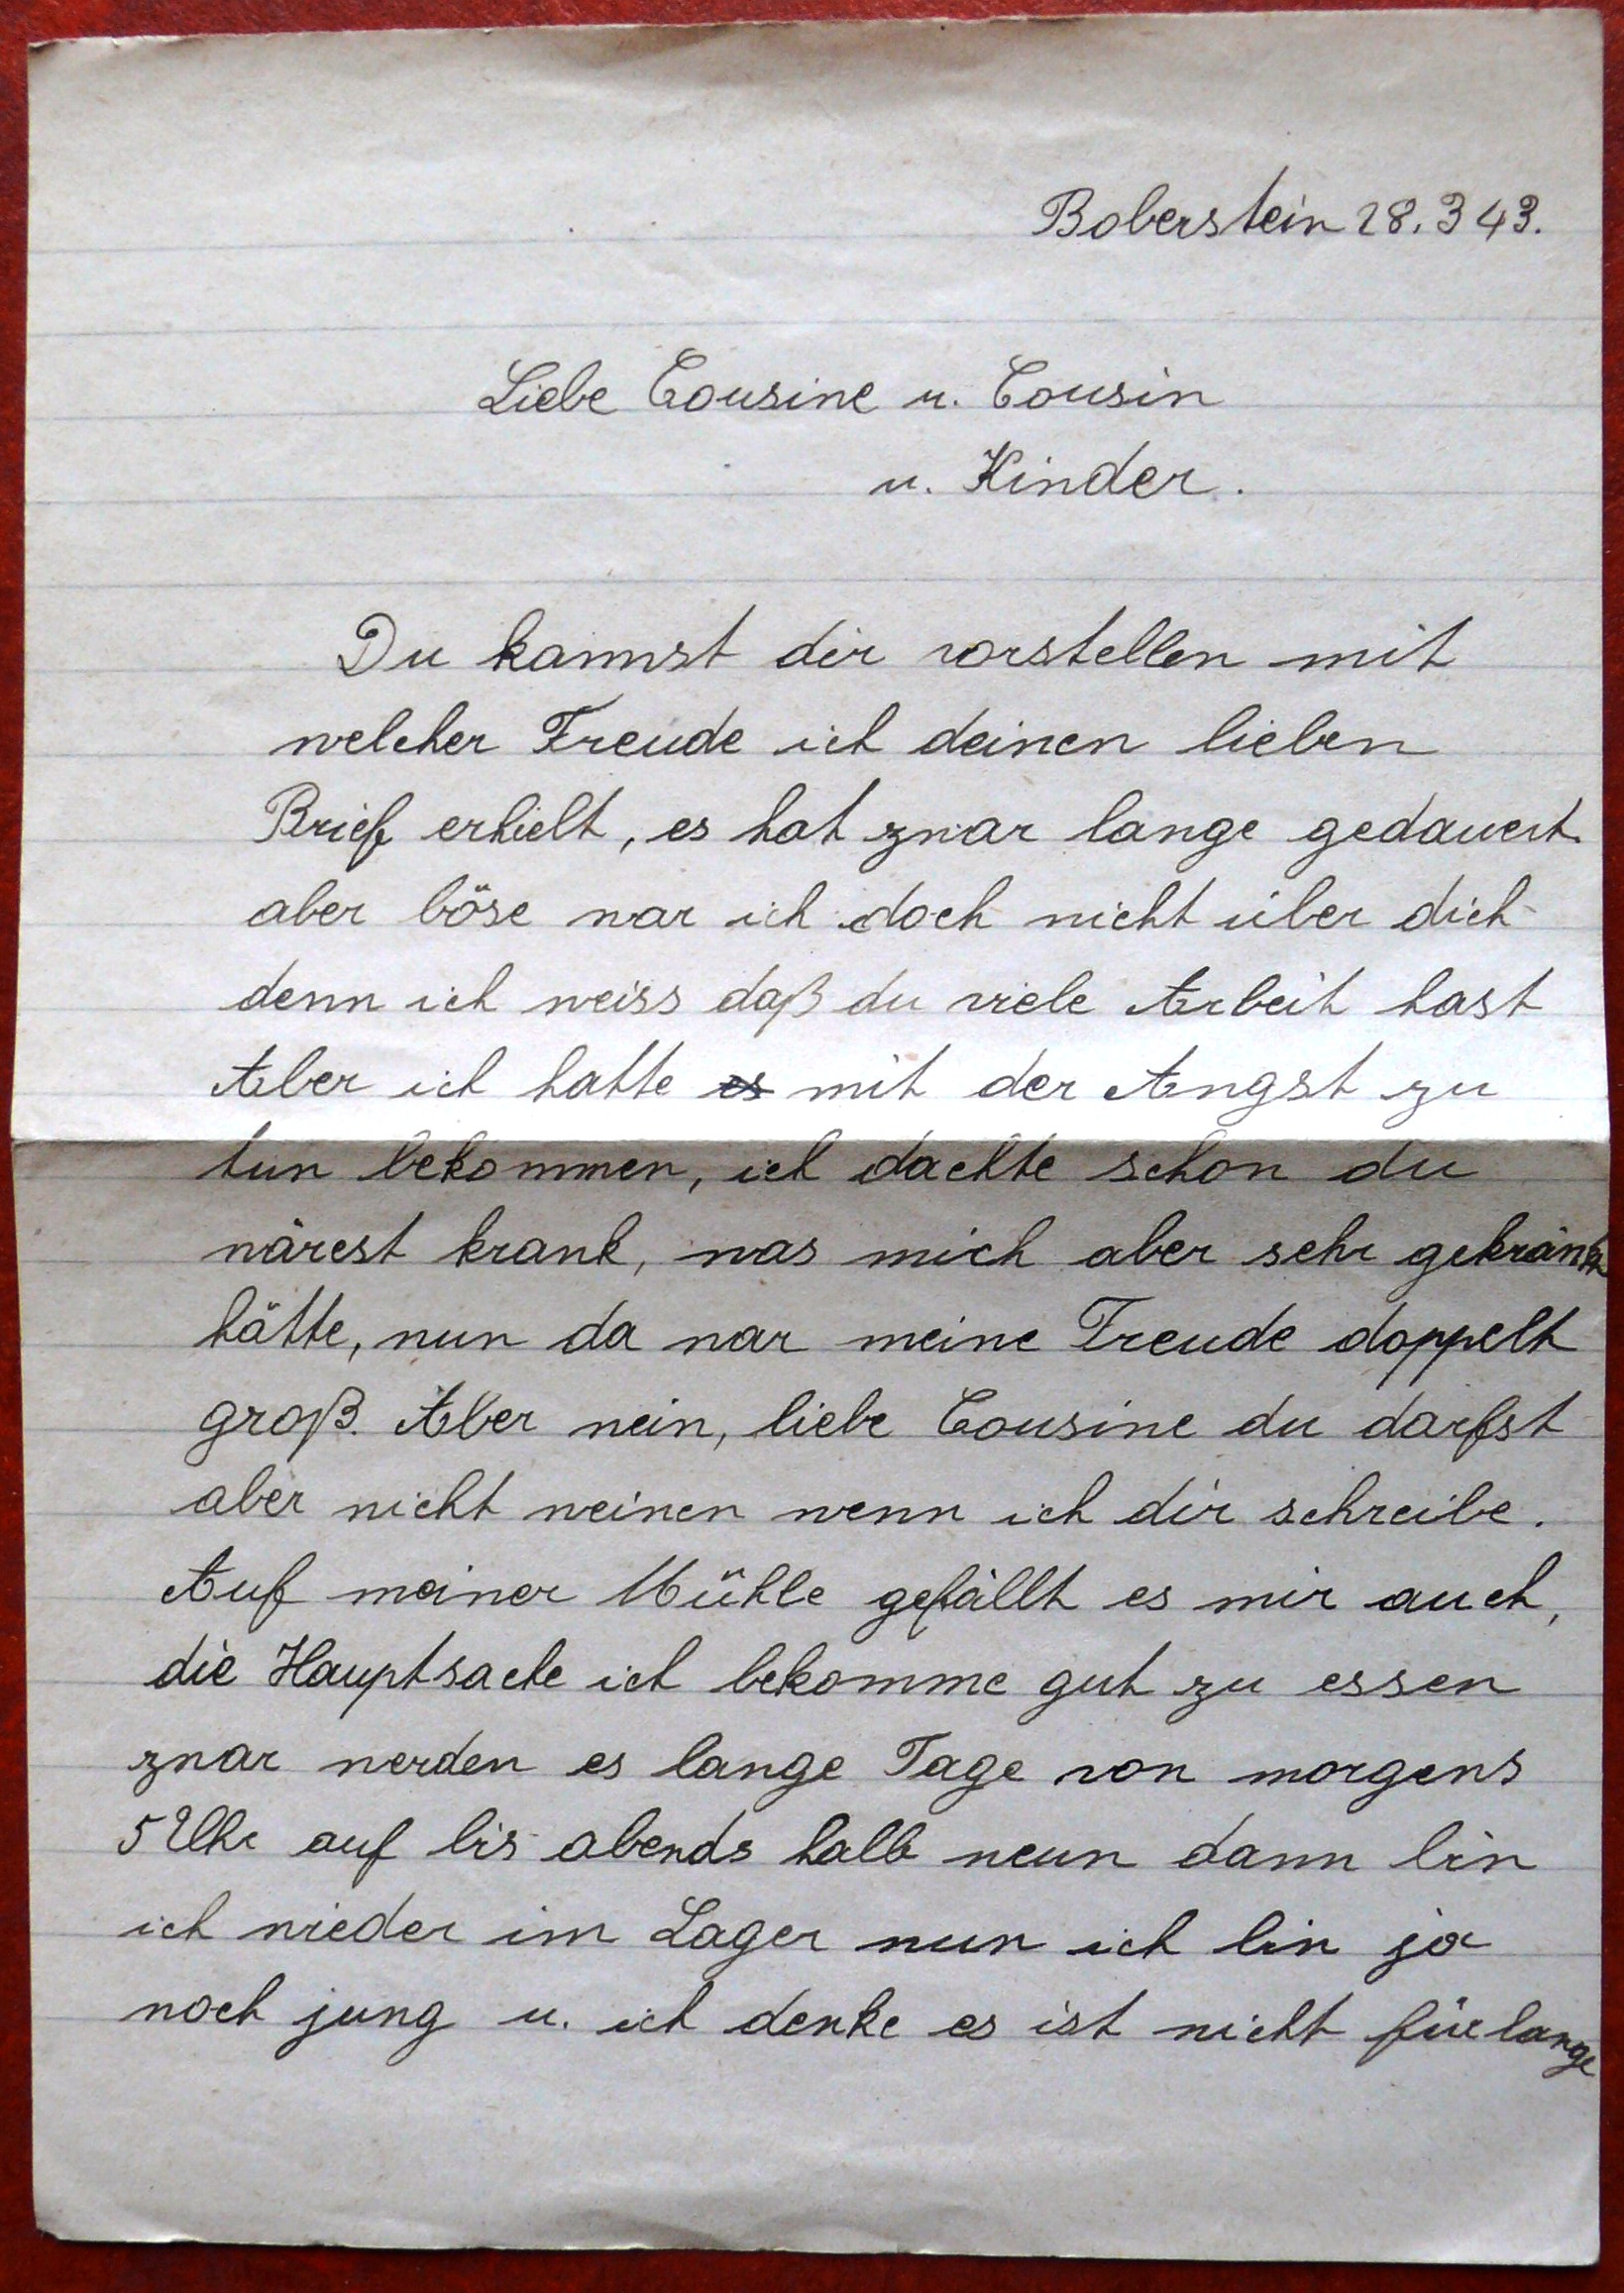 Boberstein 28. 3 43.
Liebe Cousine u. Cousin
u. Kinder.
Du kannst dir vorstellen mit
welcher Freude ich deinen lieben
Brief erhielt, es hat zwar lange gedauert.
aber böse war ich doch nicht über dich
denn ich weiss daß du viele Arbeit hast
Aber ich hatte es mit der Angst zu
tun bekommen, ich dachte schon du
wärest krank, was mich aber sehr gekränkt
hätte, nun da war meine Freude doppelt
groß. Aber nein, liebe Cousine du darfst
aber nicht weinen wenn ich dir schreibe.
Auf meiner Mühle gefällt es mir auch,
die Hauptsache ich bekomme gut zu essen
zwar werden es lange Tage von morgens
5 Uhr auf bis abends halb neun dann bin
ich wieder im Lager nun ich bin ja
noch jung u. ich denke es ist nicht für lange